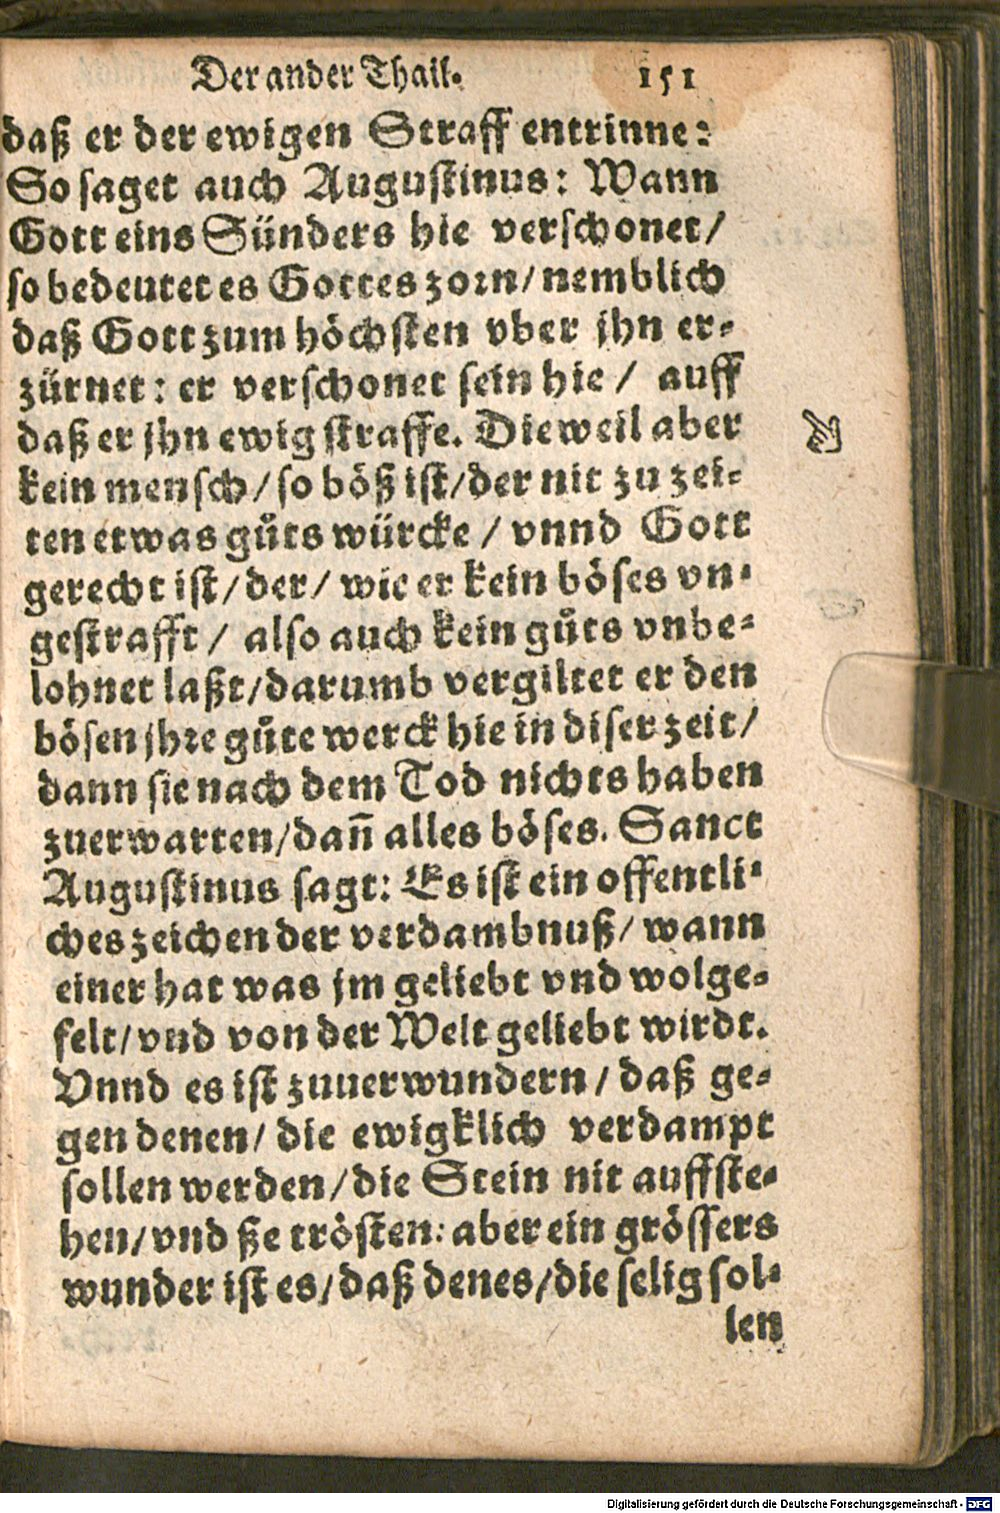 Der ander Thail. 151
daß er der ewigen Straff entrinne:
So saget auch Augustinus: Wann
Gott eins Sünders hie verschonet/
so bedeutet es Gottes zorn/ nemblich
daß Gott zum höchsten vber jhn er-
zürnet: er verschonet sein hie / auff
daß er jhn ewig straffe. Dieweil aber
kein mensch/ so böß ist/ der nit zu zei-
ten etwas gůts würcke / vnnd Gott
gerecht ist/ der/ wie er kein böses vn-
gestrafft / also auch kein gůts vnbe-
lohnet laßt/ darumb vergiltet er den
bösen jhre gůte werck hie in diser zeit/
dann sie nach dem Tod nichts haben
zuerwarten/ dañ alles böses. Sanct
Augustinus sagt: Es ist ein offentli-
ches zeichen der verdambnuß/ wann
einer hat was jm geliebt vnd wolge-
felt/ vnd von der Welt geliebt wirdt.
Vnnd es ist zuuerwundern/ daß ge-
gen denen/ die ewigklich verdampt
sollen werden/ die Stein nit auffste-
hen/ vnd ße trösten: aber ein grössers
wunder ist es/ daß denes/ die selig sol-
len
Digitalisierung gefördert durch die Deutsche Forschungsgemeinschaft - DFG